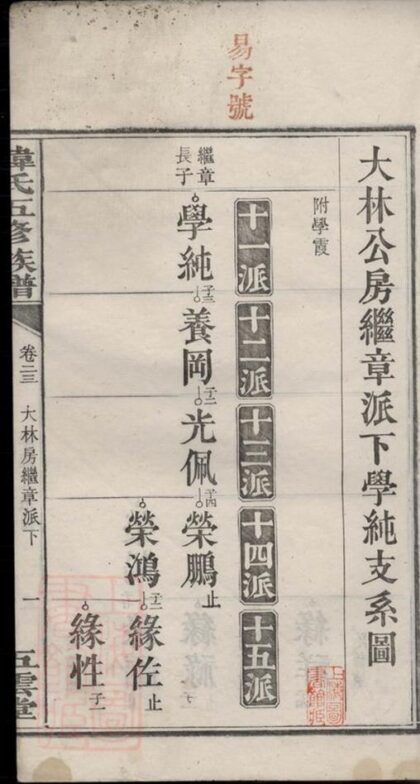 易字號
大林公房繼章派下學純支系圖
附學霞
十一派
十二派
十三派
十四派
十五派
繼章
長子
學純
子三
養岡
子二
光佩
子四
榮鵬
止
榮鴻
子二
緣佐
止
緣性
子一
氏五修族譜
卷二三
大林房繼章派下
一
五雲堂